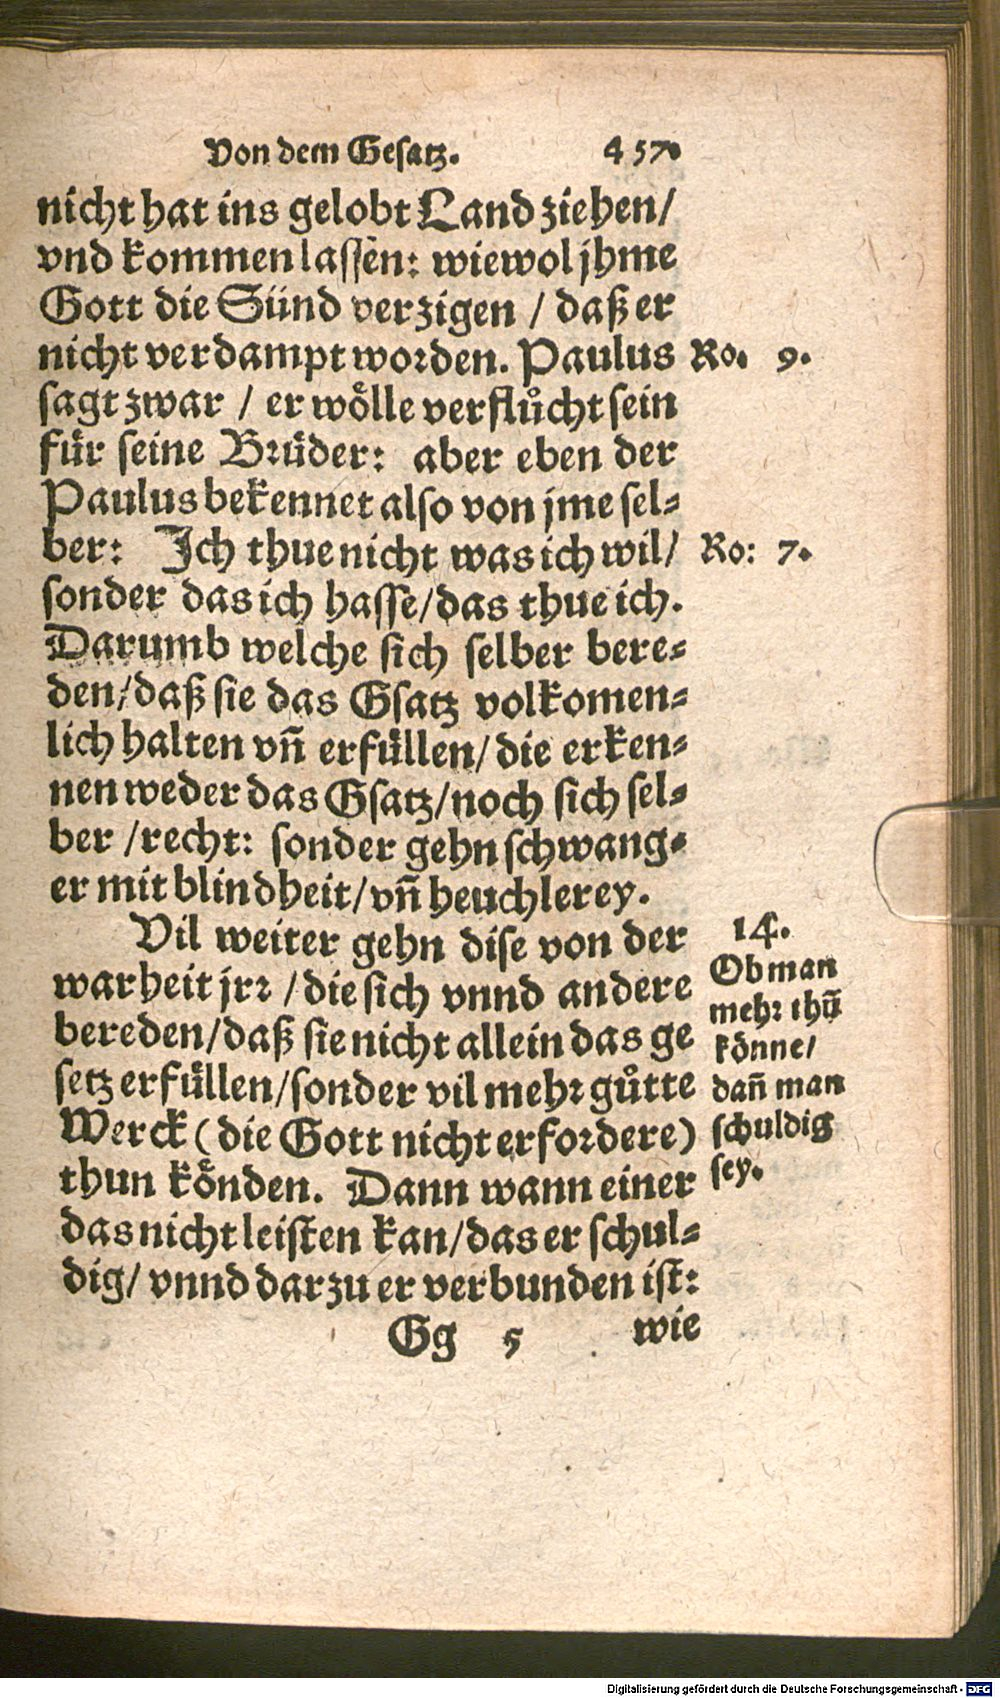 Von dem Gesatz. 457.
nicht hat ins gelobt Land ziehen/
vnd kommen lassen: wiewol jhme
Gott die Sünd verzigen / daß er
nicht verdampt worden. Paulus
Ro. 9.
sagt zwar / er wölle verflůcht sein
für seine Brüder: aber eben der
Paulus bekennet also von jme sel-
ber: Ich thue nicht was ich wil/
Ro: 7.
sonder das ich hasse/das thue ich.
Darumb welche sich selber bere-
den/daß sie das Gsatz volkomen-
lich halten vñ erfüllen/die erken-
nen weder das Gsatz/noch sich sel-
ber /recht: sonder gehn schwang-
er mit blindheit/vñ heuchlerey.
Vil weiter gehn dise von der
warheit jrr /die sich vnnd andere
bereden/daß sie nicht allein das ge
setz erfüllen/sonder vil mehr gůtte
Werck (die Gott nicht erfordere)
thun könden. Dann wann einer
das nicht leisten kan/das er schul-
dig/ vnnd darzu er verbunden ist:
14.
Ob man
mehr thũ
könne/
dañ man
schuldig
sey.
Gg 5 wie
Digitalisierung gefördert durch die Deutsche Forschungsgemeinschaft - DFG